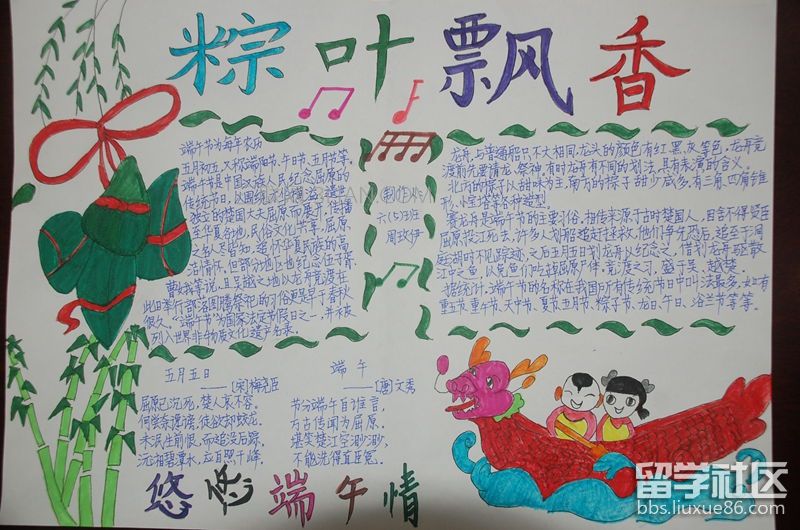 粽叶飘香
端午节为每年农历
五月初五,又称端阳节,午日节,五月节等。
端午节是中国汉族人民纪念屈原的
传统节日,以围绕才华横溢、遗世
独立的楚国大夫屈原而展开,传播
至华夏各地,民俗文化共享,屈原
之名人尽皆知,追怀华夏民族的高
洁情怀。但部分地区也有纪念伍子胥、
曹娥等说,且吴越之地以龙舟竞渡在
此日举行部落图腾祭祀的习俗更是早于春秋
很久。“端午节”为国家法定节假日之一,并被
列入世界非物质文化遗产名录。
制作
六(5)班
龙舟与普通船只不大相同,龙头的颜色有红、黑、灰等色,龙舟竞
渡前先要请龙、祭神,有时龙舟有不同的划法,具有表演的含义。
北方的粽子以甜味为主,南方的粽子甜少咸多,有三角、四角锥
形、小宝塔等各种造型。
赛龙舟是端午节的主要习俗,相传来源于古时楚国人,因舍不得贤臣
屈原投江死去,许多人划船追赶拯救,他们争先恐后,追至于洞
庭湖时不见踪迹,之后五月五日划龙舟以纪念之,借划龙舟驱散
江中之鱼,以免鱼们吃掉屈原尸体,竞渡之习,盛于吴、越、楚。
据统计,端午节的名称在我国所有传统节日中叫法最多,如有:
重五节、重午节、天中节、夏节、五月节、粽子节、龙日、午日、浴兰节等等。
五月五日
——[宋]梅尧臣
屈原已沉死,楚人哀不容。
何尝奈谗谤,徒欲却蛟龙。
未泯生前恨,而追没后踪。
沅湘碧潭水,应自照千峰。
端午
——[唐]文秀
节分端午自谁言,
万古传闻为屈原。
堪笑楚江空渺渺,
不能洗得直臣冤。
悠悠端午情
留学社区
bbs.liuxue86.com